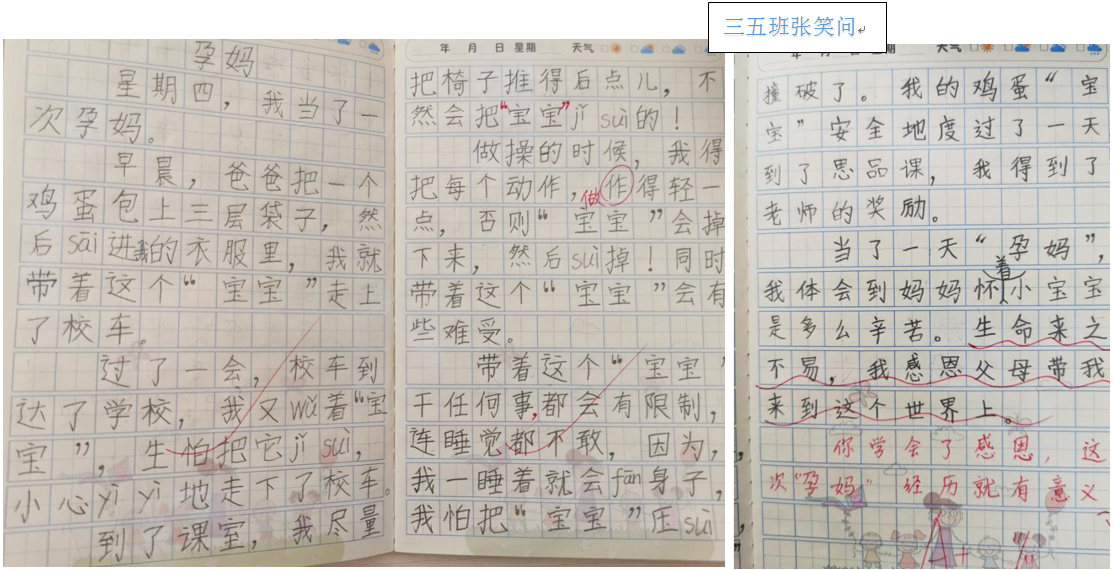 三五班张笑问
孕妈
星期四，我当了一
次孕妈。
早晨，爸爸把一个
鸡蛋包上三层袋子，然
后sāi进我的衣服里，我就
带着这个“宝宝”走上
了校车。
过了一会，校车到
达了学校，我又wǔ着“宝
宝”，生怕把它jǐ suì，
小心yì yì地走下了校车。
到了课室，我尽量
年 月 日 星期 天气
把椅子推得后点儿，不
然会把“宝宝”jǐ suì的！
做操的时候，我得
把每个动作，做作得轻一
点，否则“宝宝”会掉
下来，然后suì掉！同时
带着这个“宝宝”会有
些难受。
带着这个“宝宝”
干任何事，都会有限制，
连睡觉都不敢，因为，
我一睡着就会fān身子，
我怕把“宝宝”压suì
年 月 日 星期 天气
撞破了。我的鸡蛋“宝
宝”安全地度过了一天
到了思品课，我得到了
老师的奖励。
当了一天“孕妈”，
我体会到妈妈怀着小宝宝
是多么辛苦。生命来之
不易，我感恩父母带我
来到这个世界上。
你学会了感恩，这
次“孕妈”经历就有意义